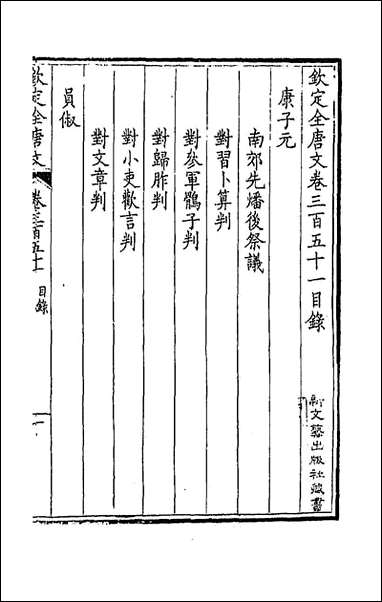 欽定全唐文卷三百五十一目錄
康子元
南郊先燔後祭議
對習卜算判
對參軍鶻子判
對歸胙判
對小吏歡言判
對文章判
員俶
欽定全唐文
卷三百五十一
目錄
一
新文藝出版社藏書